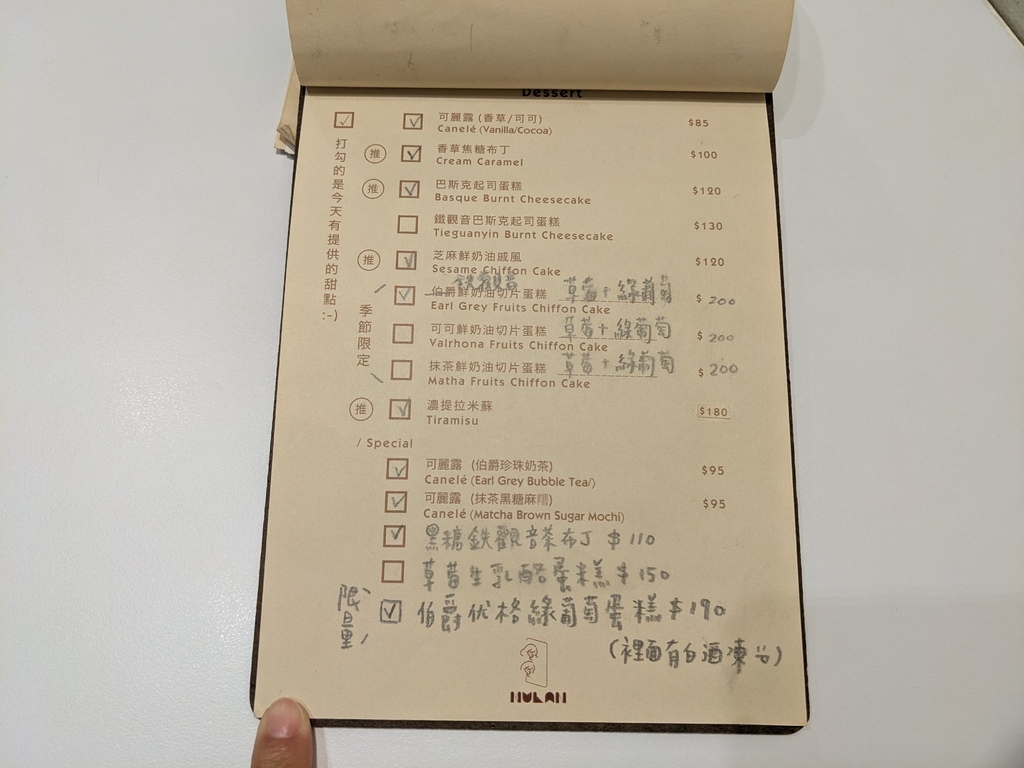 Dessert
打勾的是今天有提供的甜點 :-)
可麗露 (香草/可可) $85
Canelé (Vanilla/Cocoa)
推 香草焦糖布丁 $100
Cream Caramel
推 巴斯克起司蛋糕 $120
Basque Burnt Cheesecake
鐵觀音巴斯克起司蛋糕 $130
Tieguanyin Burnt Cheesecake
推 芝麻鮮奶油戚風 $120
Sesame Chiffon Cake
季節限定
鉄觀音
伯爵鮮奶油切片蛋糕 草莓+綠葡萄 $200
Earl Grey Fruits Chiffon Cake
可可鮮奶油切片蛋糕 草莓+綠葡萄 $200
Valrhona Fruits Chiffon Cake
抹茶鮮奶油切片蛋糕 草莓+綠葡萄 $200
Matha Fruits Chiffon Cake
推 濃提拉米蘇 $180
Tiramisu
/ Special
可麗露 (伯爵珍珠奶茶) $95
Canelé (Earl Grey Bubble Tea/)
可麗露 (抹茶黑糖麻糬) $95
Canelé (Matcha Brown Sugar Mochi)
黑糖鉄觀音茶布丁 $110
草莓生乳酪蛋糕 $150
限量 伯爵优格綠葡萄蛋糕 $190
(裡面有白酒凍)
MULAN